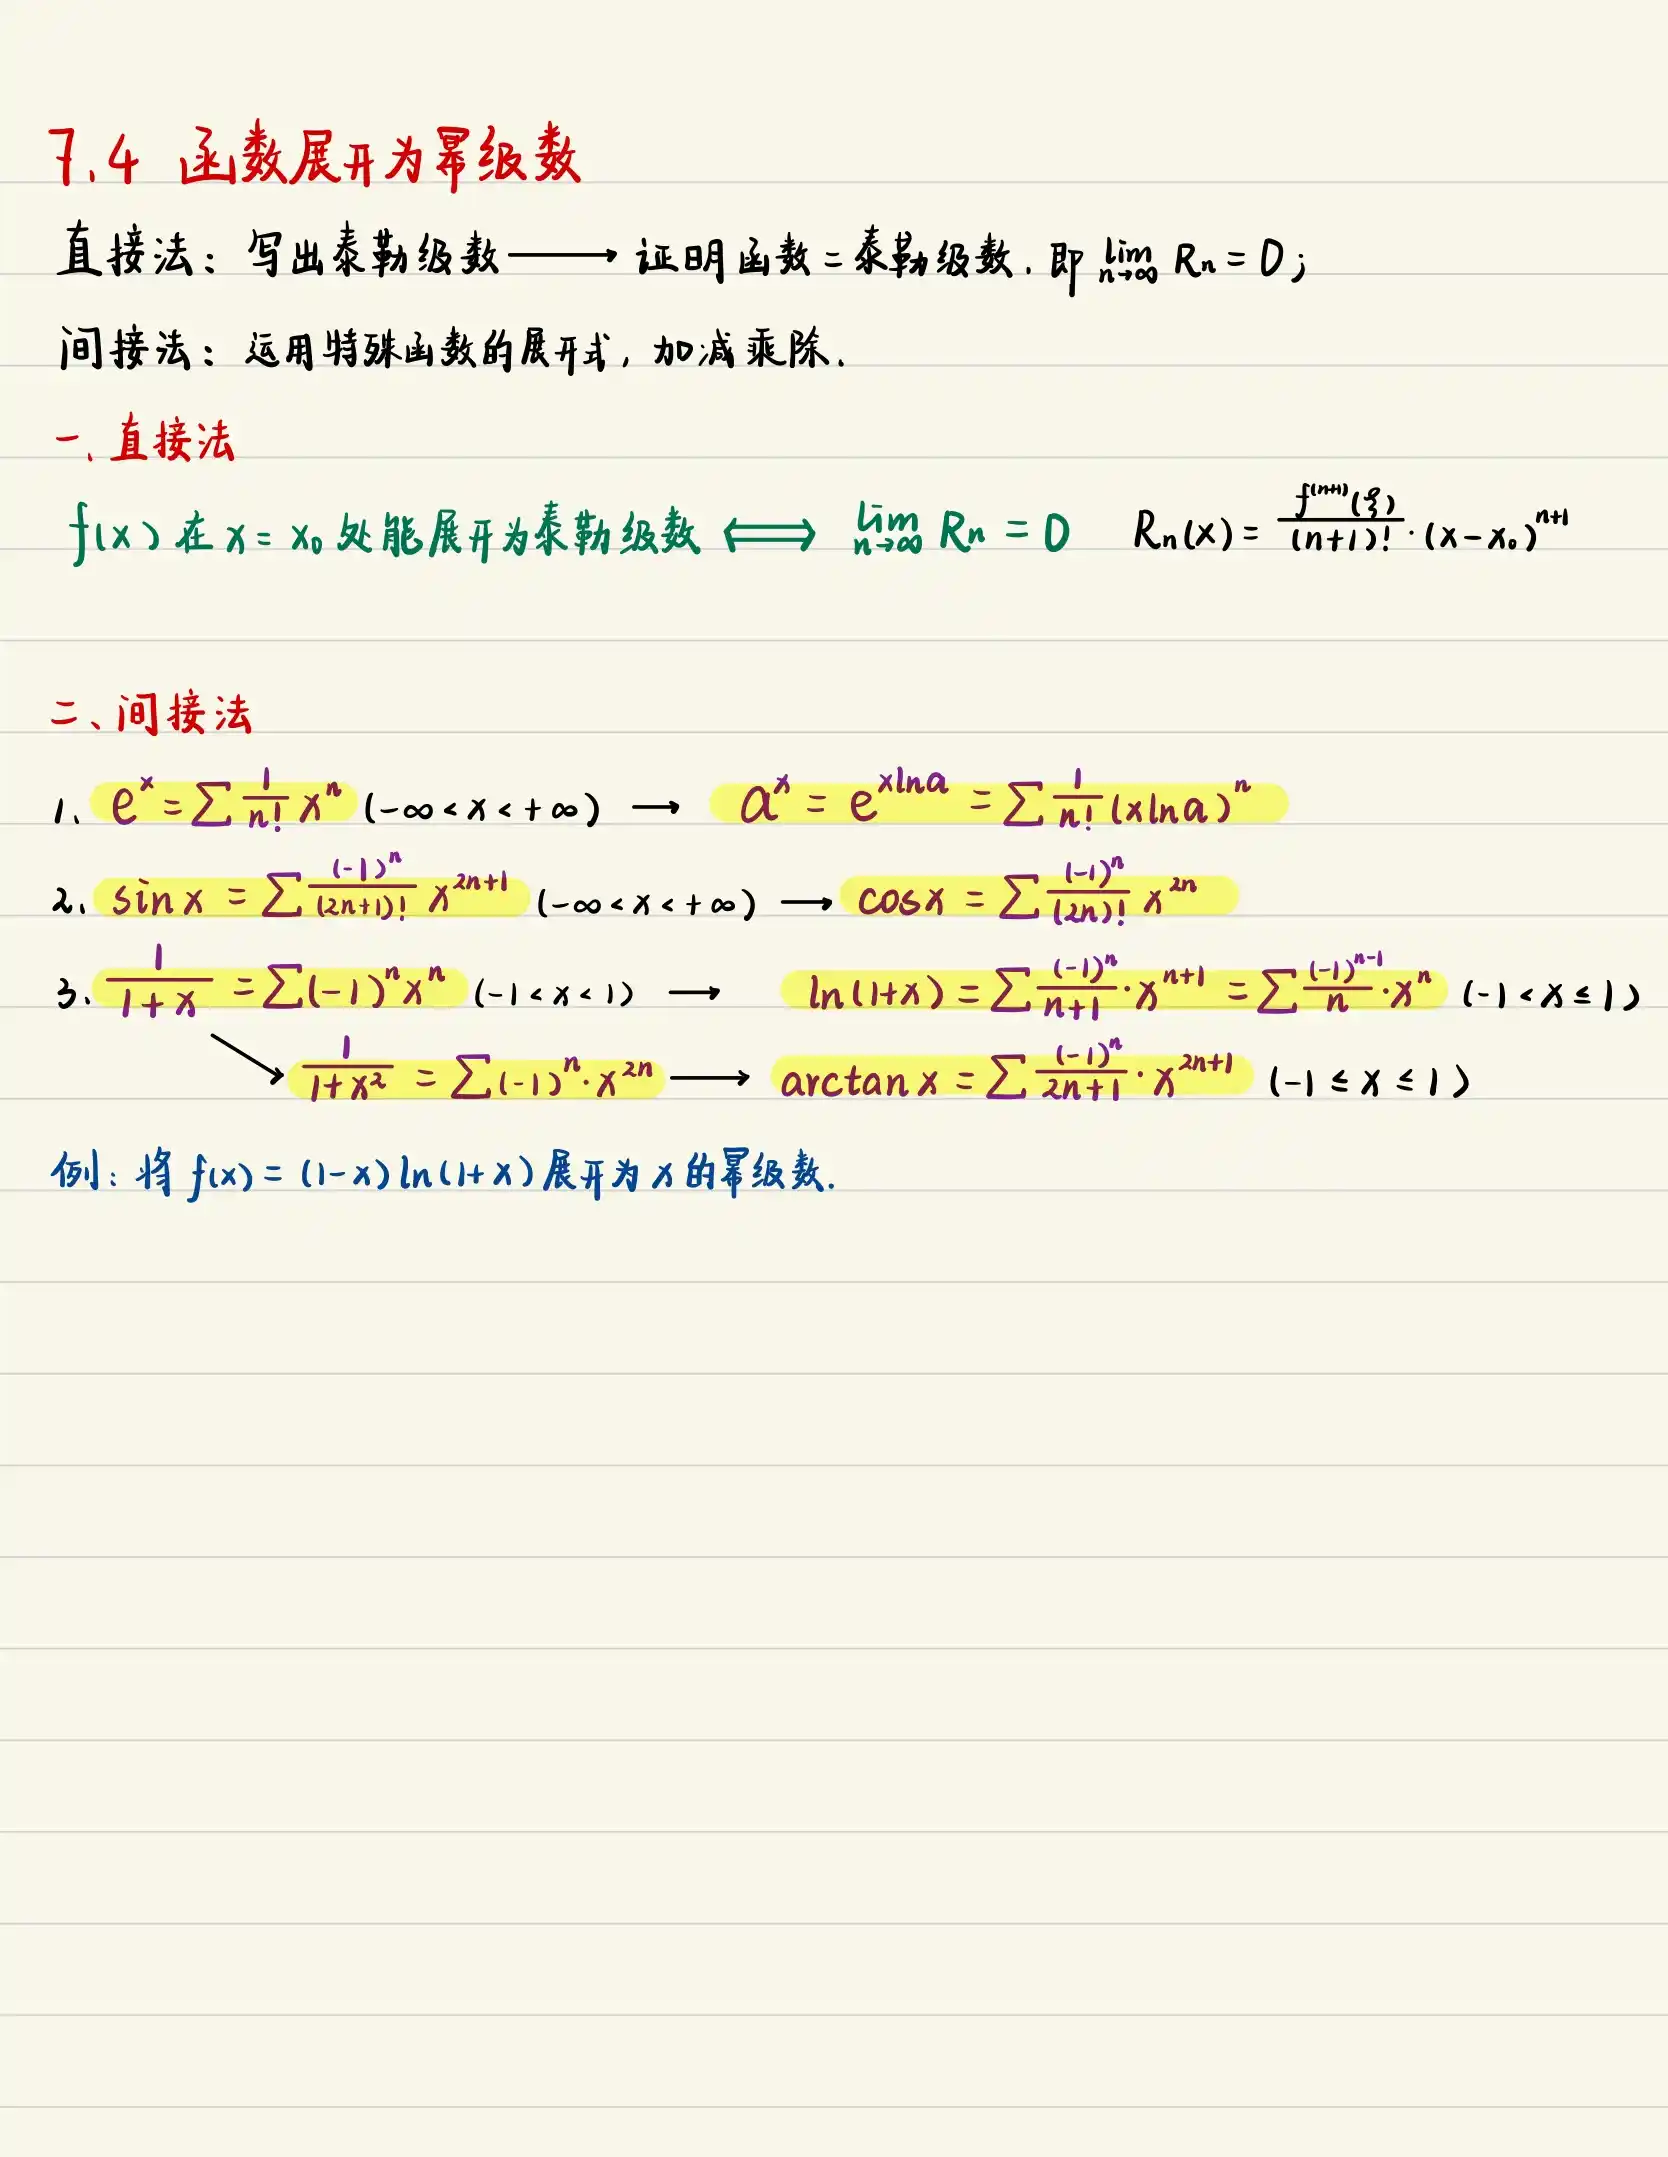 7.4 函数展开为幂级数
直接法：写出泰勒级数 ⟶ 证明函数=泰勒级数. 即 lim n→∞ Rn = 0;
间接法：运用特殊函数的展开式, 加减乘除.
一、直接法
f(x) 在 x = x₀ 处能展开为泰勒级数 ⟺ lim n→∞ Rn = 0 Rn(x) = f⁽ⁿ⁺¹⁾(ξ)/(n+1)! · (x-x₀)ⁿ⁺¹
二、间接法
1. eˣ = ∑ 1/n! xⁿ (-∞ < x < +∞) → aˣ = e^(xlna) = ∑ 1/n! (xlna)ⁿ
2. sinx = ∑ (-1)ⁿ/(2n+1)! x²ⁿ⁺¹ (-∞ < x < +∞) → cosx = ∑ (-1)ⁿ/(2n)! x²ⁿ
3. 1/(1+x) = ∑(-1)ⁿxⁿ (-1 < x < 1) → ln(1+x) = ∑ (-1)ⁿ/(n+1) · xⁿ⁺¹ = ∑ (-1)ⁿ⁻¹/n · xⁿ (-1 < x ≤ 1)
↘ 1/(1+x²) = ∑(-1)ⁿ · x²ⁿ → arctanx = ∑ (-1)ⁿ/(2n+1) · x²ⁿ⁺¹ (-1 ≤ x ≤ 1)
例：将 f(x) = (1-x)ln(1+x) 展开为 x 的幂级数.